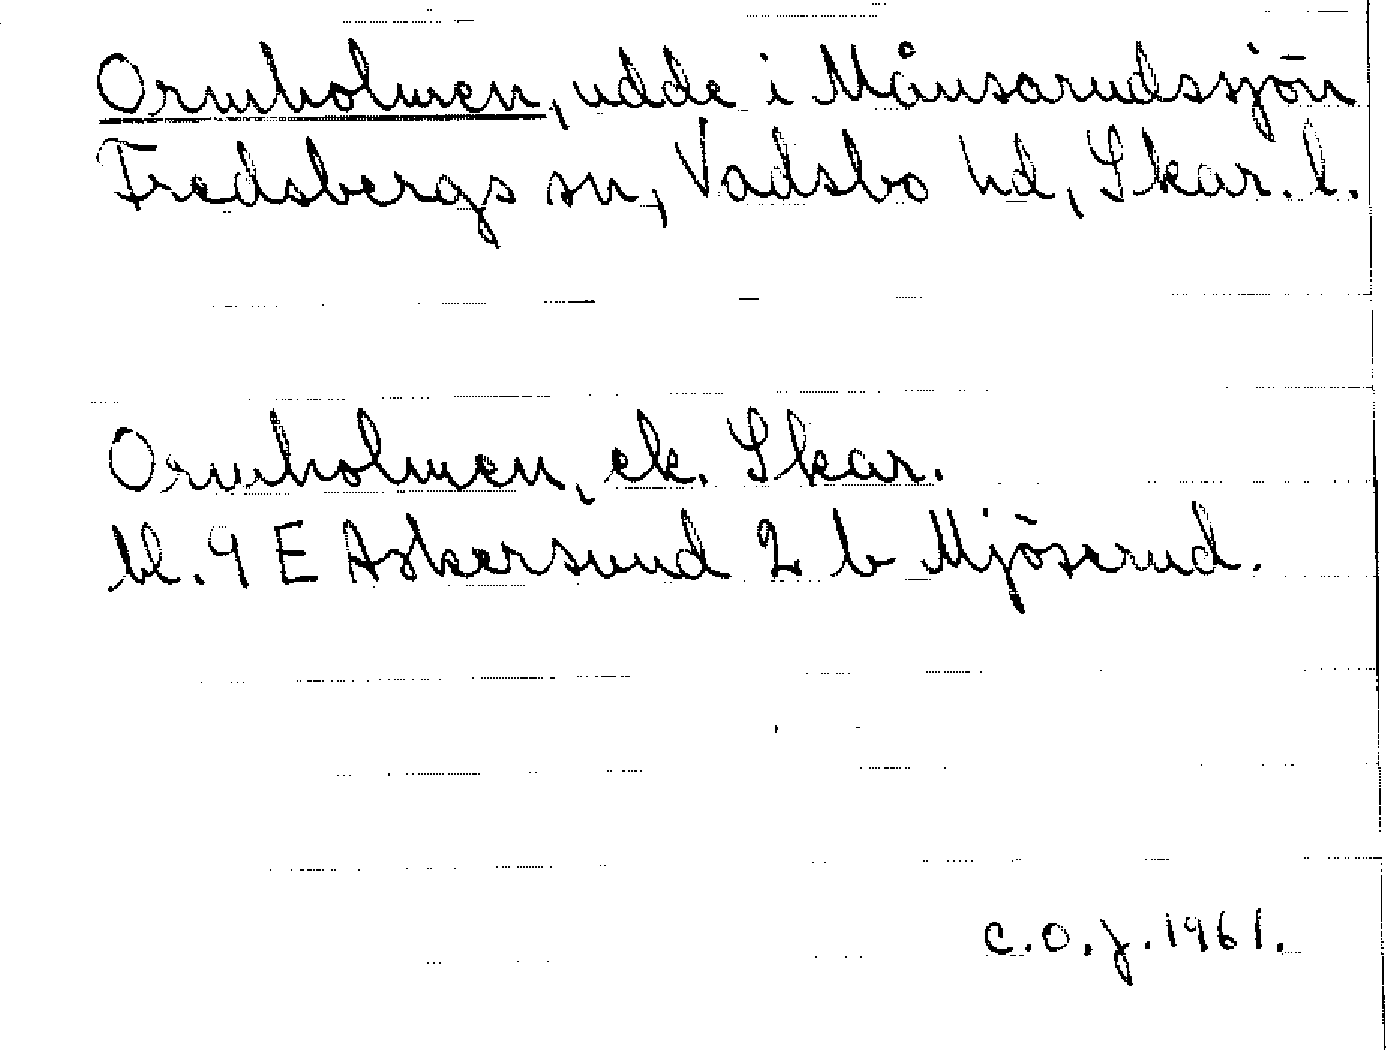 Ormholmen, udde i Månsarudssjön
Fredsbergs sn, Vadsbo hd, Skar. l.
Ormholmen, ek. Skar.
bl. 9 E Askersund 2 b Mjöserud.
C.O.J. 1961.